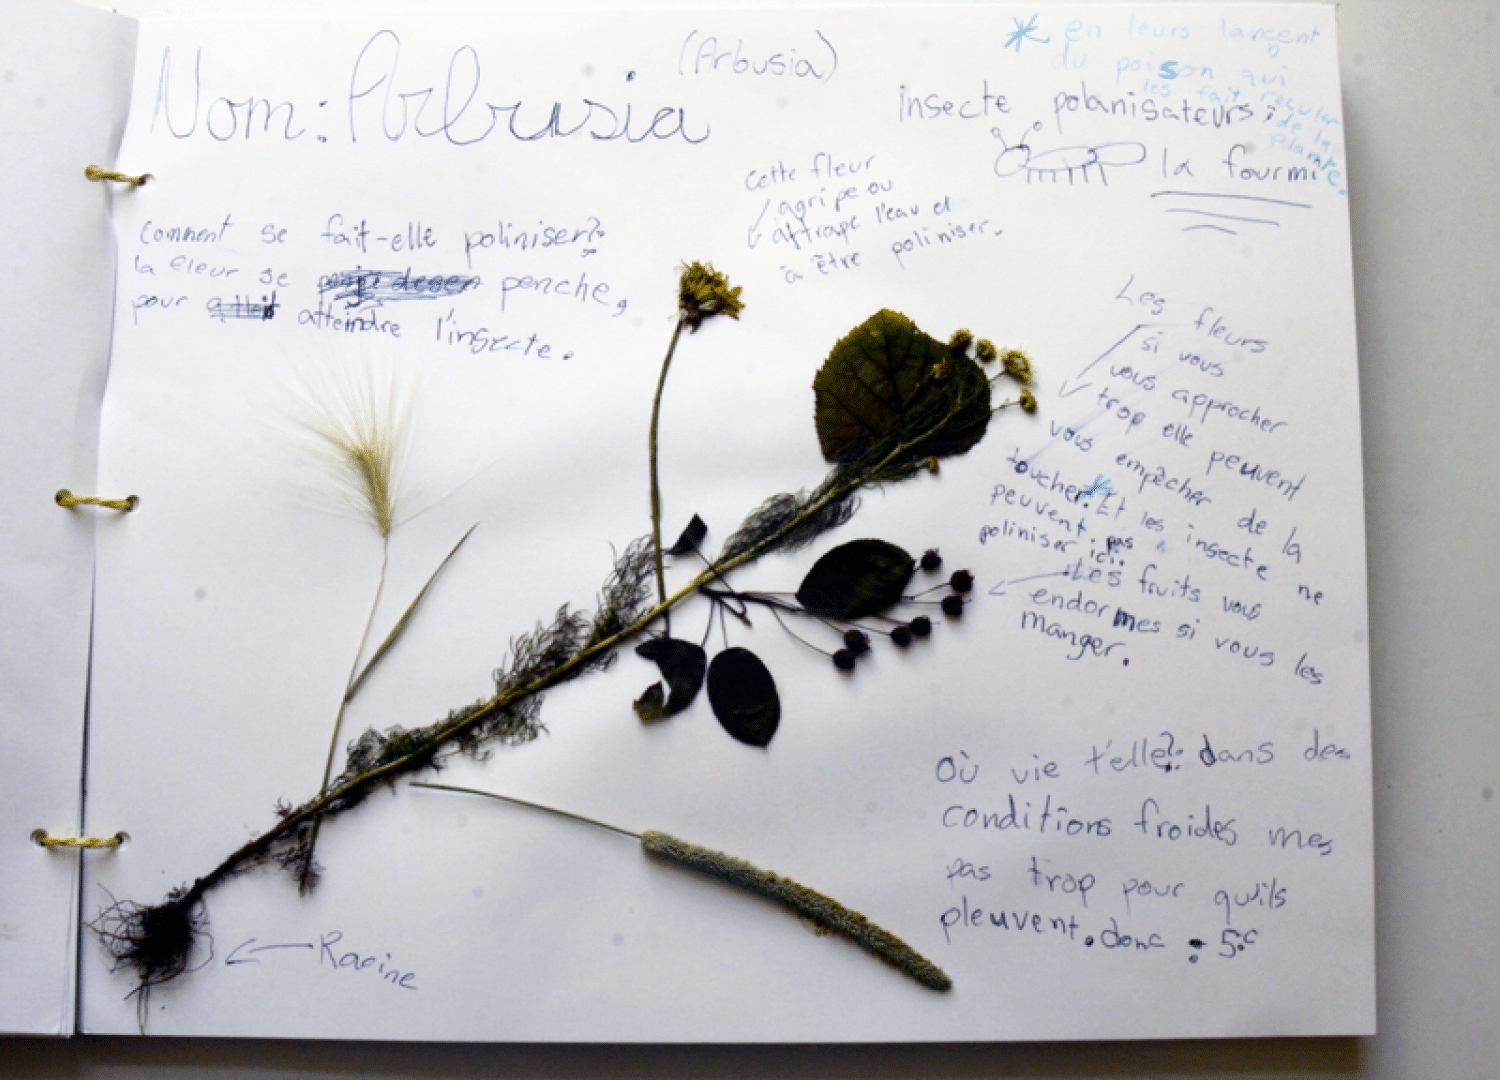 Nom: Arbusia
(Arbusia)
* en leurs lançent
du poison qui
les fait reculer
de la
plante.
insecte polanisateurs:
la fourmi
Comment se fait-elle poliniser?
la fleur se penche,
pour atteindre l'insecte.
Cette fleur
agripe ou
attrape l'eau et
à être poliniser.
Les fleurs
si vous
vous approcher
trop elle peuvent
vous empêcher de la
toucher.* Et les insecte ne
peuvent pas
poliniser ici.
Les fruits vous
endormes si vous les
manger.
Où vie t'elle?: dans des
conditions froides mes
pas trop pour qu'ils
pleuvent. donc : 5°c
Racine